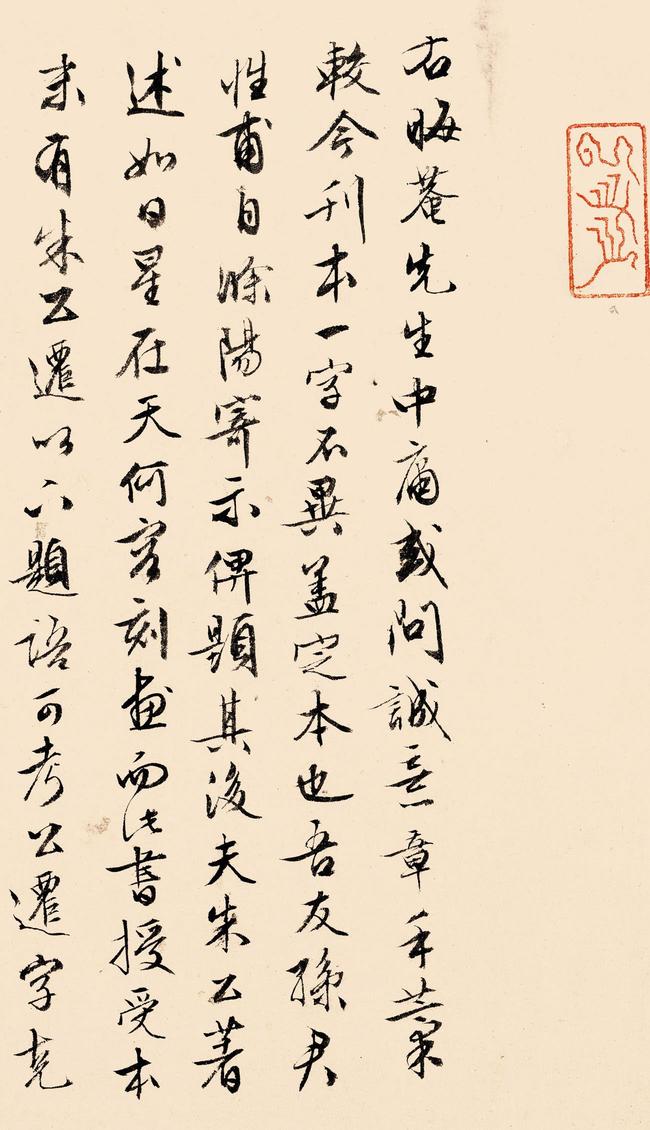 右晦菴先生中庸或問誠意章手稾
較今刊本一字不異蓋定本也吾友孫君
性甫自滁陽寄示俾題其後夫朱公著
述如日星在天何容刻畫而法書授受本
末有朱公遷以下題語可考公遷字克